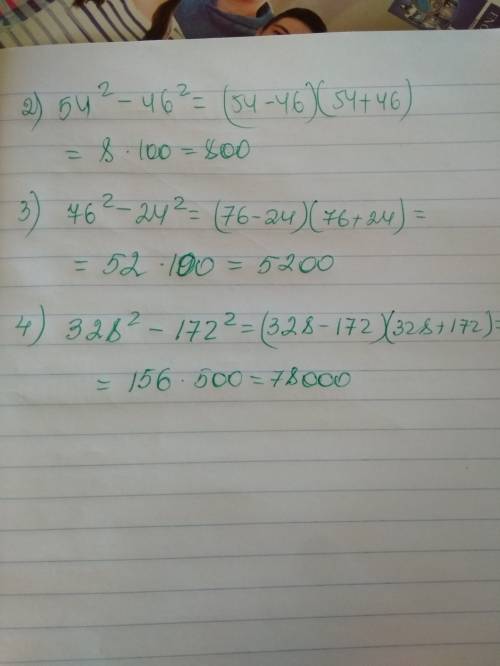 2) 54² - 46² = (54 - 46)(54 + 46)
= 8 · 100 = 800
3) 76² - 24² = (76 - 24)(76 + 24) =
= 52 · 100 = 5200
4) 328² - 172² = (328 - 172)(328 + 172) =
= 156 · 500 = 78000